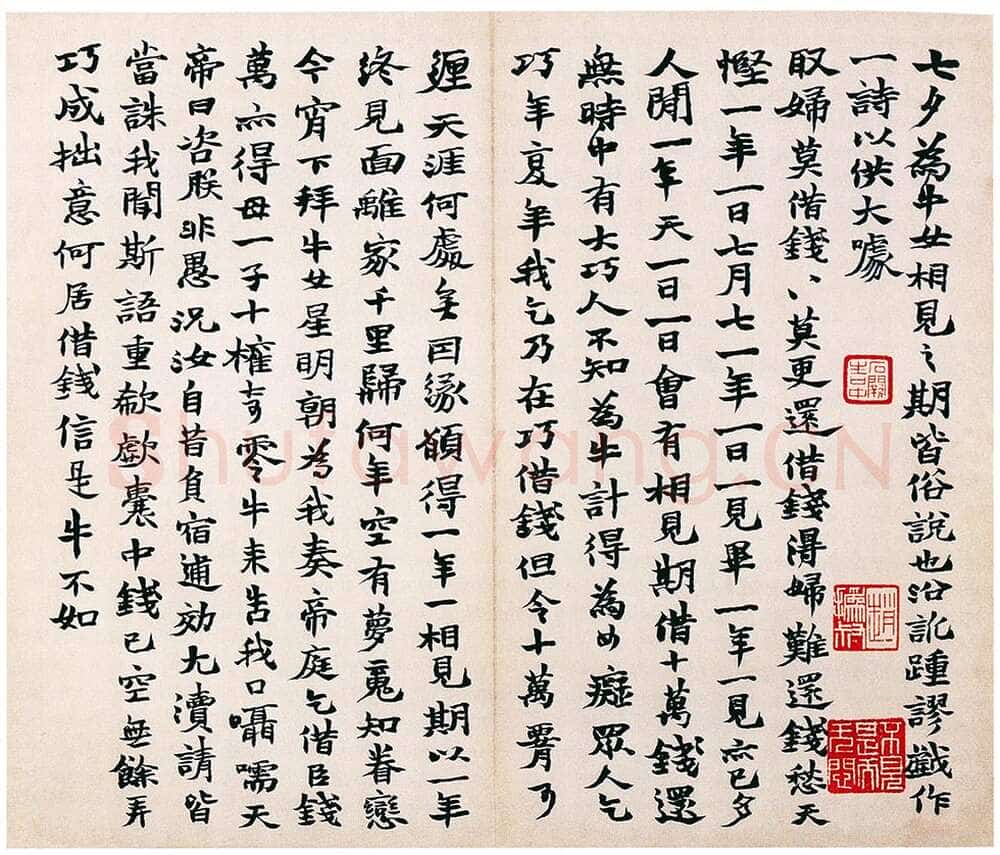 七夕為牛女相見之期皆俗說也沿訛踵謬戲作
一詩以供大噱
取婦莫借錢〻莫更還借錢淂婦難還錢愁天
慳一年一日七月七一年一日一見畢一年一見亦已多
人間一年天一日一日會有相見期借十萬錢還
無時中有大巧人不知為牛計得為女癡眾人乞
巧年復年我乞乃在巧借錢但令十萬可
天涯何處無因緣願得一年一相見期以一年
終見面離家千里歸何年空有夢魂知眷戀
今宵下拜牛女星明朝為我奏帝庭乞借臣錢
萬亦得母一子十權奇零牛來告我口囁嚅天
帝曰咨朕非愚況汝自昔負宿逋效尤瀆請皆
當誅我聞斯語重欷歔囊中錢已空無餘弄
巧成拙意何居借錢信是牛不如
Shufawang.CN